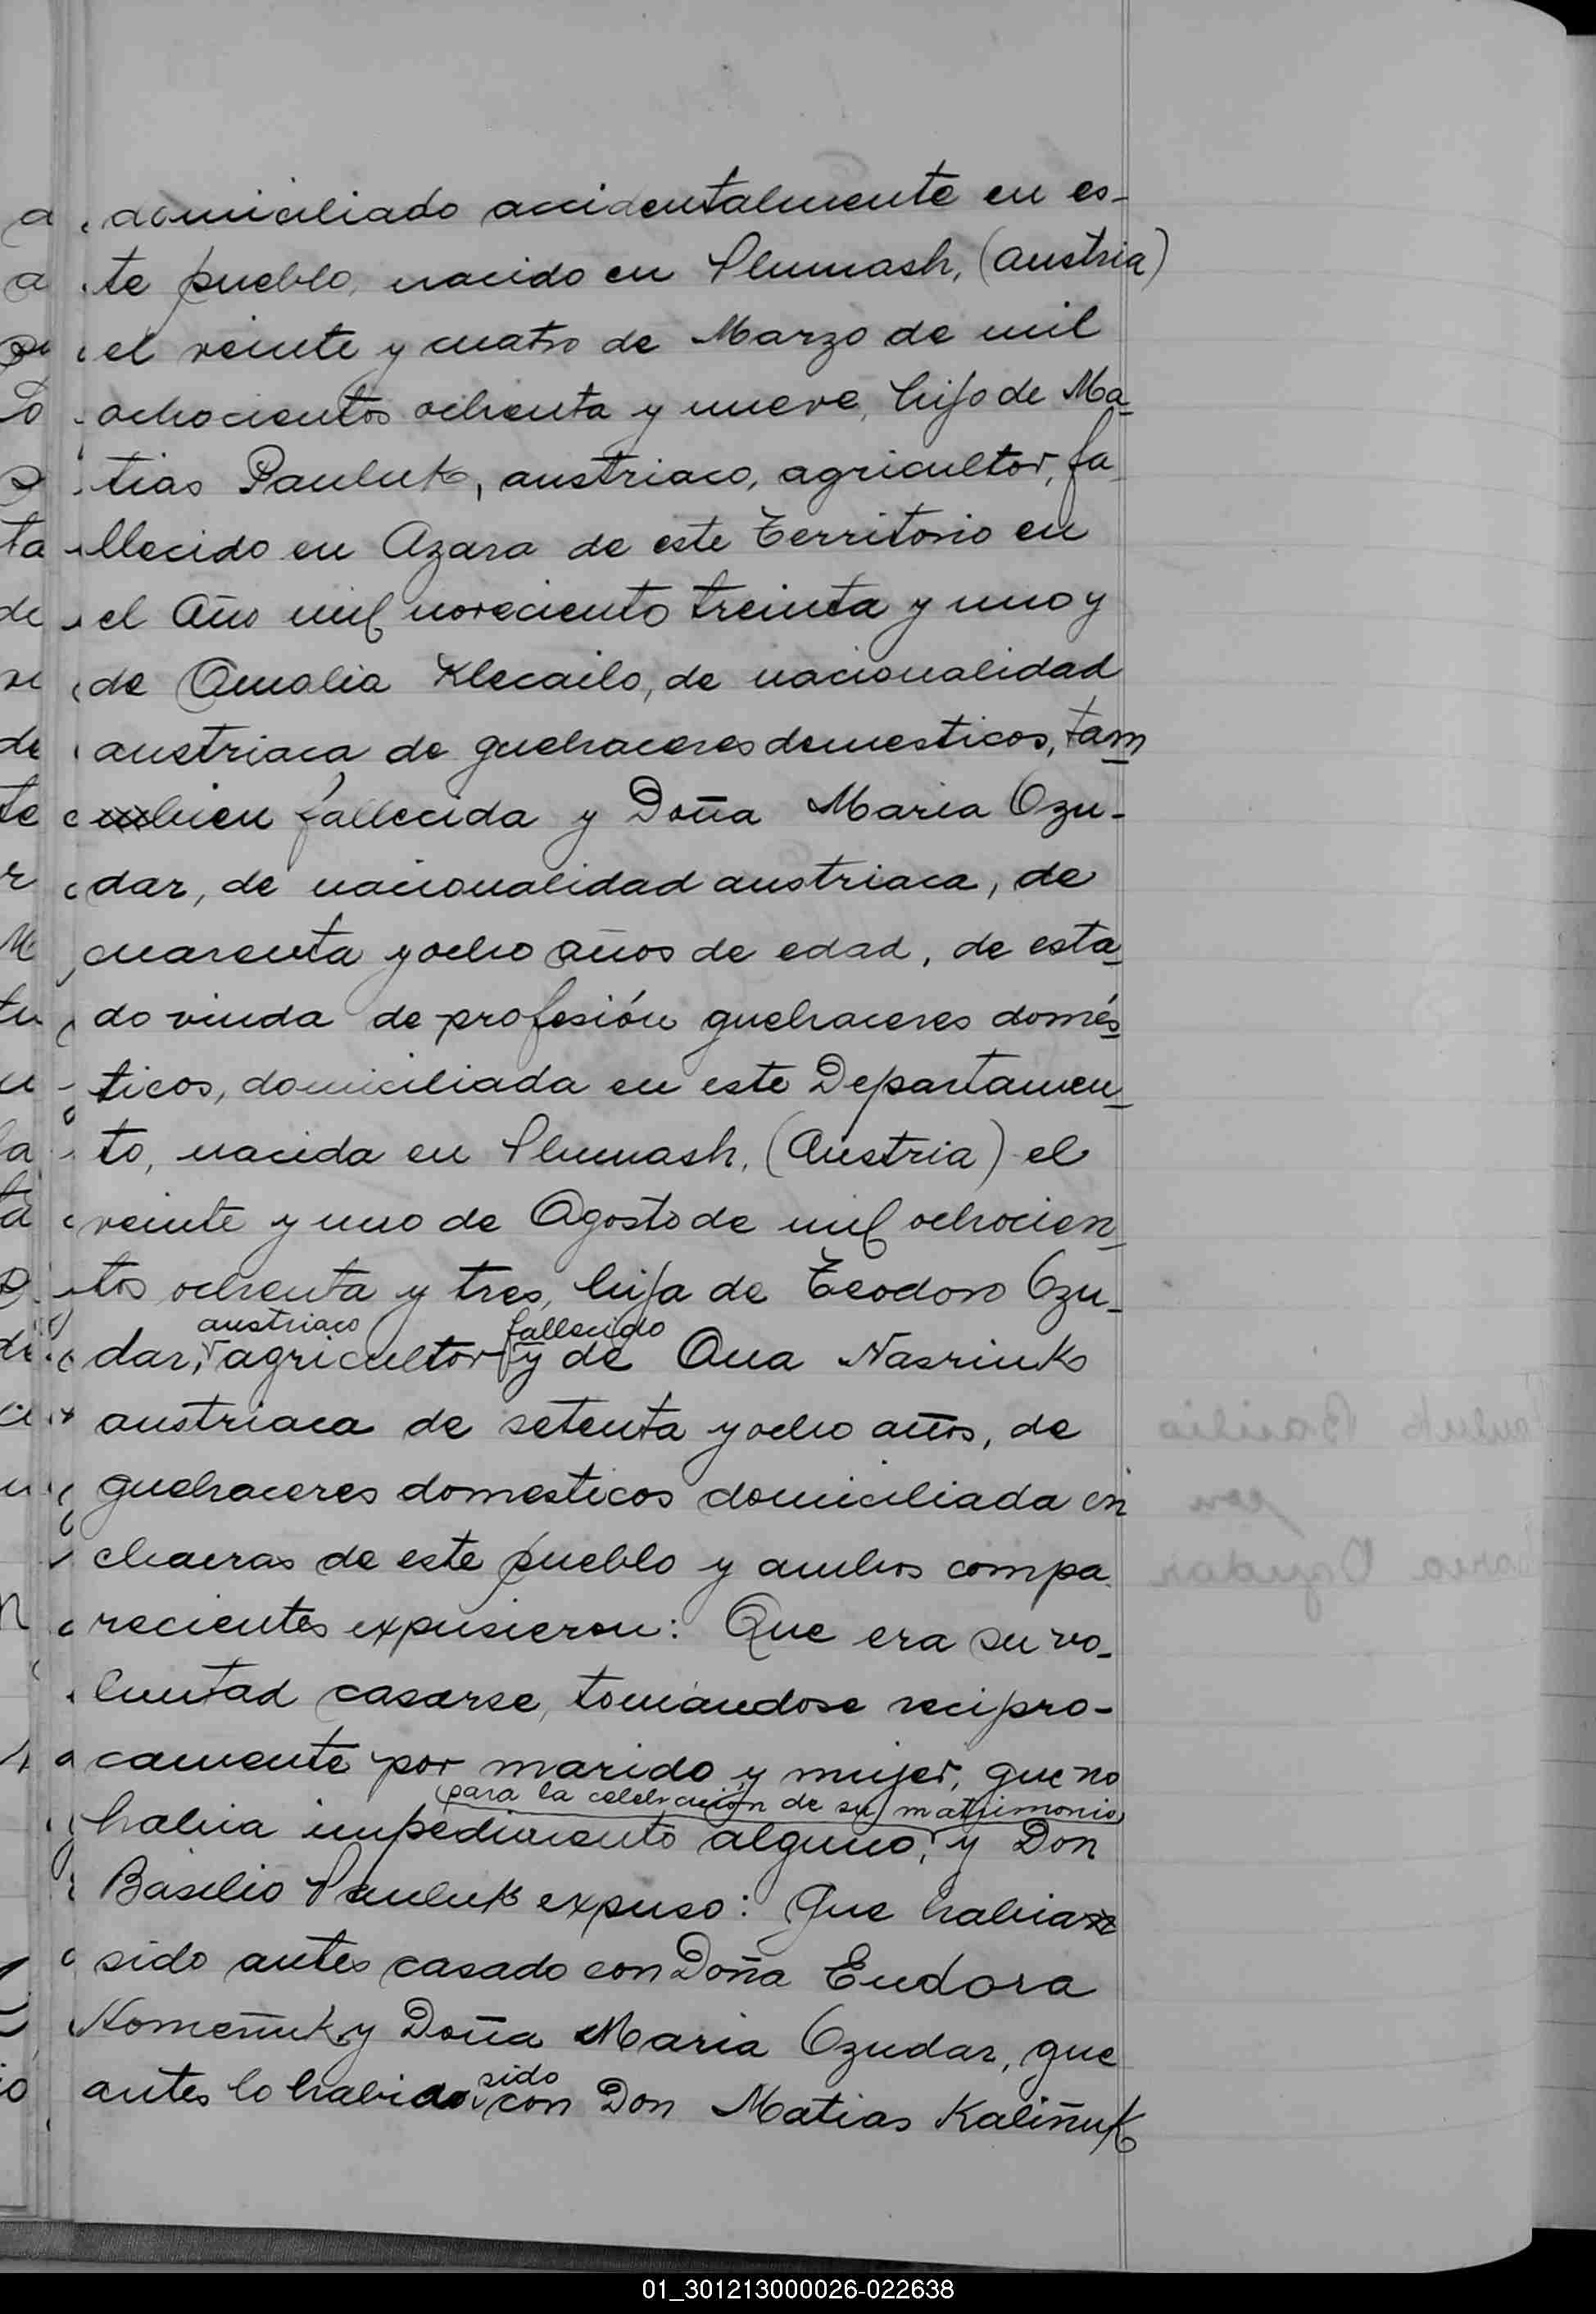 domiciliado accidentalmente en es-
te pueblo, nacido en Plumash, (Austria)
el veinte y cuatro de Marzo de mil
ochocientos ochenta y nueve, hijo de Ma-
tias Pauluk, austriaco, agricultor, fa-
llecido en Azara de este Territorio en
el Año mil noveciento treinta y uno y
de Amalia Klecailo, de nacionalidad
austriaca de quehaceres demesticos, tam
bien fallecida y Doña Maria Ozu-
dar, de nacionalidad austriaca, de
cuarenta y ocho años de edad, de esta-
do viuda de profesión quehaceres domés
ticos, domiciliada en este Departamen-
to, nacida en Plumash, (Austria) el
veinte y uno de Agosto de mil ochocien-
tos ochenta y tres, hija de Teodoro Ozu-
austriaco fallecido
dar, agricultor y de Ana Nasriuk
austriaca de setenta y ocho años, de
quehaceres domesticos domiciliada en
chacras de este pueblo y ambos compa-
recientes expusieron: Que era su vo-
luntad casarse, tomándose recipro-
camente por marido y mujer, que no
para la celebración de su matrimonio
habia impedimento alguno, y Don
Basilio Pauluk expuso: Que habia
sido antes casado con Doña Eudora
Nomeñuk y Doña Maria Ozudar, que
sido
antes lo habia con Don Matias Kaliñuk
01_301213000026-022638